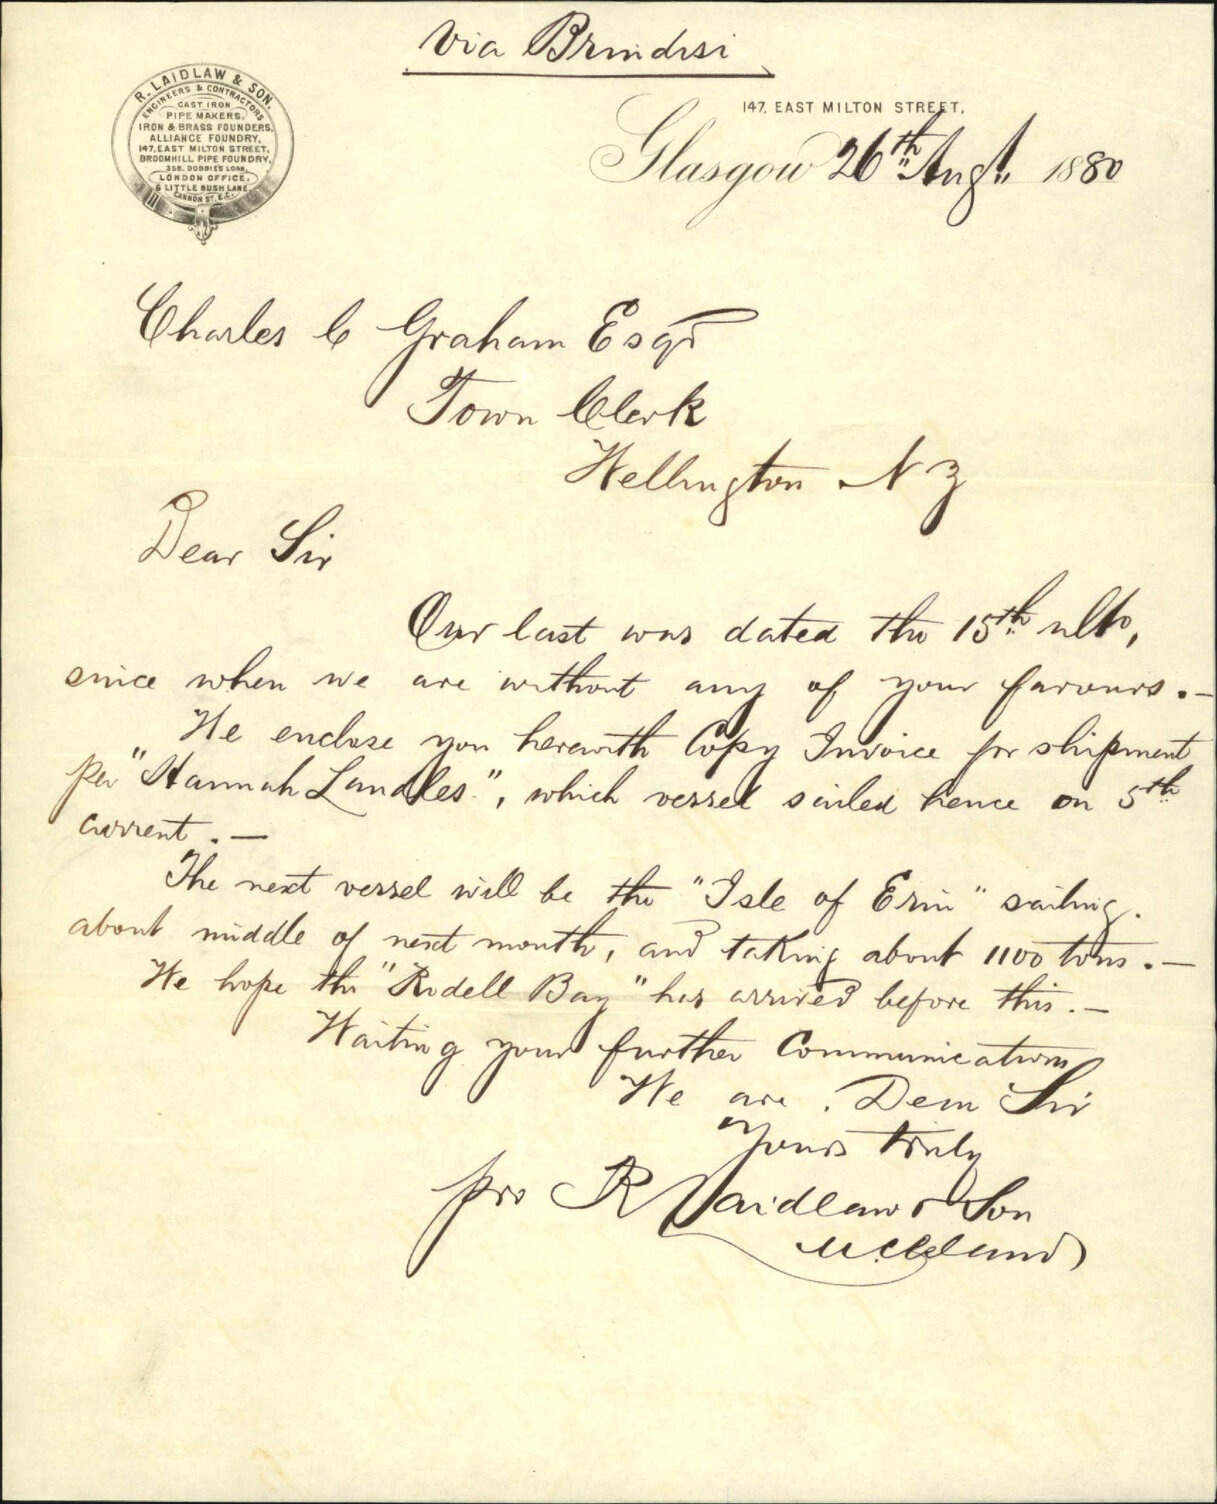 Via Brindisi
R. LAIDLAW & SON,
ENGINEERS & CONTRACTORS
CAST IRON
PIPE MAKERS,
IRON & BRASS FOUNDERS,
ALLIANCE FOUNDRY,
147, EAST MILTON STREET,
BROOMHILL PIPE FOUNDRY,
350, DOBBIES LOAN,
LONDON OFFICE,
6 LITTLE BUSH LANE,
CANNON ST. E.C.
147, EAST MILTON STREET,
Glasgow 26th Augt. 1880
Charles C Graham Esqr
Town Clerk
Wellington N Z
Dear Sir
Our last was dated the 15th ulto,
since when we are without any of your favours. -
We enclose you herewith Copy Invoice for shipment
per "Hannah Landles", which vessel sailed hence on 5th
current. -
The next vessel will be the "Isle of Erin" sailing.
about middle of next month, and taking about 1100 tons. -
We hope the "Rodell Bay" has arrived before this. -
Waiting your further Communications
We are. Dear Sir
Yours truly
pro R Laidlaw & Son